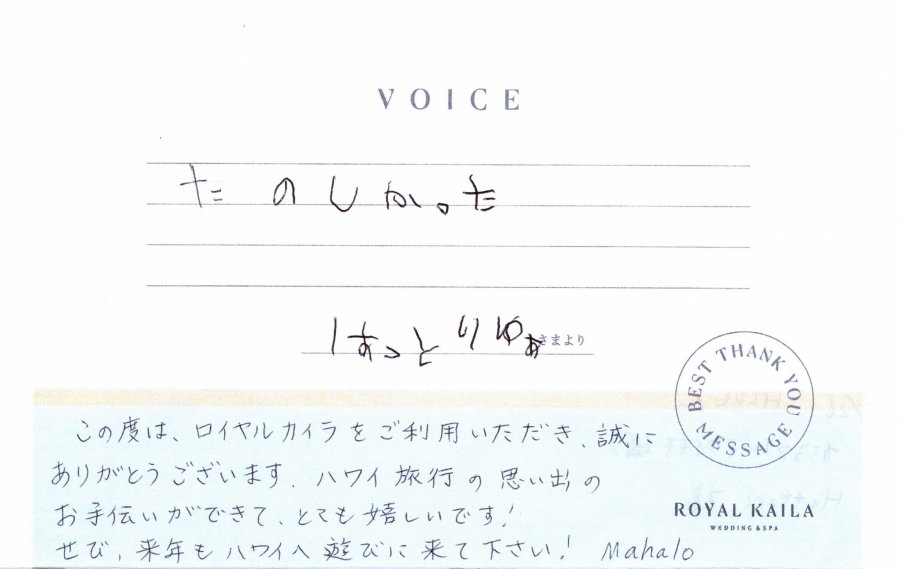 VOICE
たのしかった
はっとりゆあ
さまより
BEST THANK YOU MESSAGE
この度は、ロイヤルカイラをご利用いただき、誠に
ありがとうございます。ハワイ旅行の思い出の
お手伝いができて、とても嬉しいです!
ぜひ、来年もハワイへ遊びに来て下さい! Mahalo
ROYAL KAILA
WEDDING & SPA